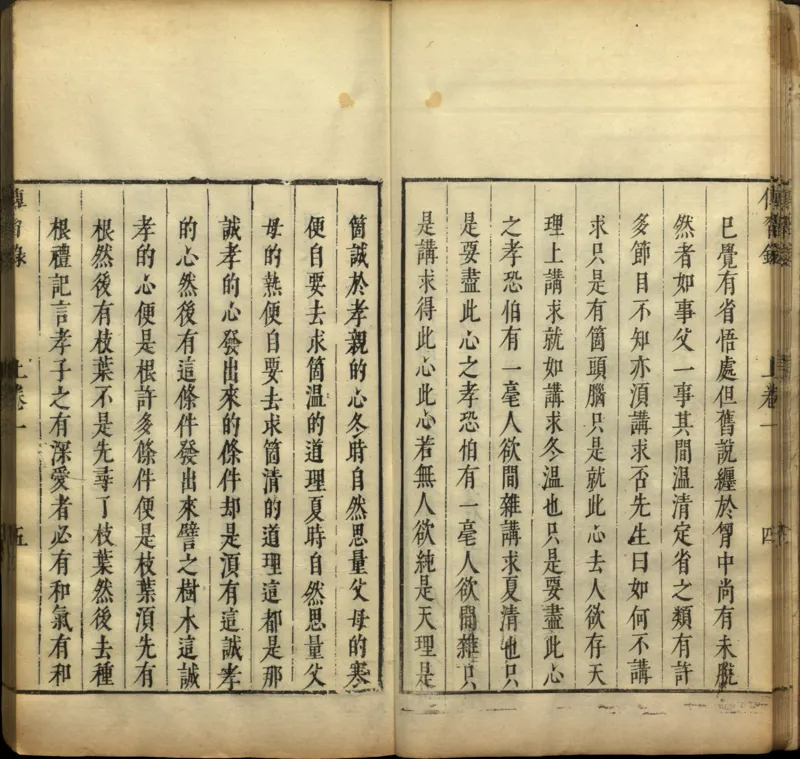 傳習錄 上卷一 四
已覺有省悟處但舊說纏於胷中尚有未脫
然者如事父一事其間溫清定省之類有許
多節目不知亦湏講求否先生曰如何不講
求只是有箇頭腦只是就此心去人欲存天
理上講求就如講求冬溫也只是要盡此心
之孝恐怕有一毫人欲間雜講求夏清也只
是要盡此心之孝恐怕有一毫人欲間雜只
是講求得此心此心若無人欲純是天理是
箇誠於孝親的心冬時自然思量父母的寒
便自要去求箇溫的道理夏時自然思量父
母的熱便自要去求箇清的道理這都是那
誠孝的心發出來的條件却是湏有這誠孝
的心然後有這條件發出來譬之樹木這誠
孝的心便是根許多條件便是枝葉湏先有
根然後有枝葉不是先尋了枝葉然後去種
根禮記言孝子之有深愛者必有和氣有和
傳習錄 上卷一 五